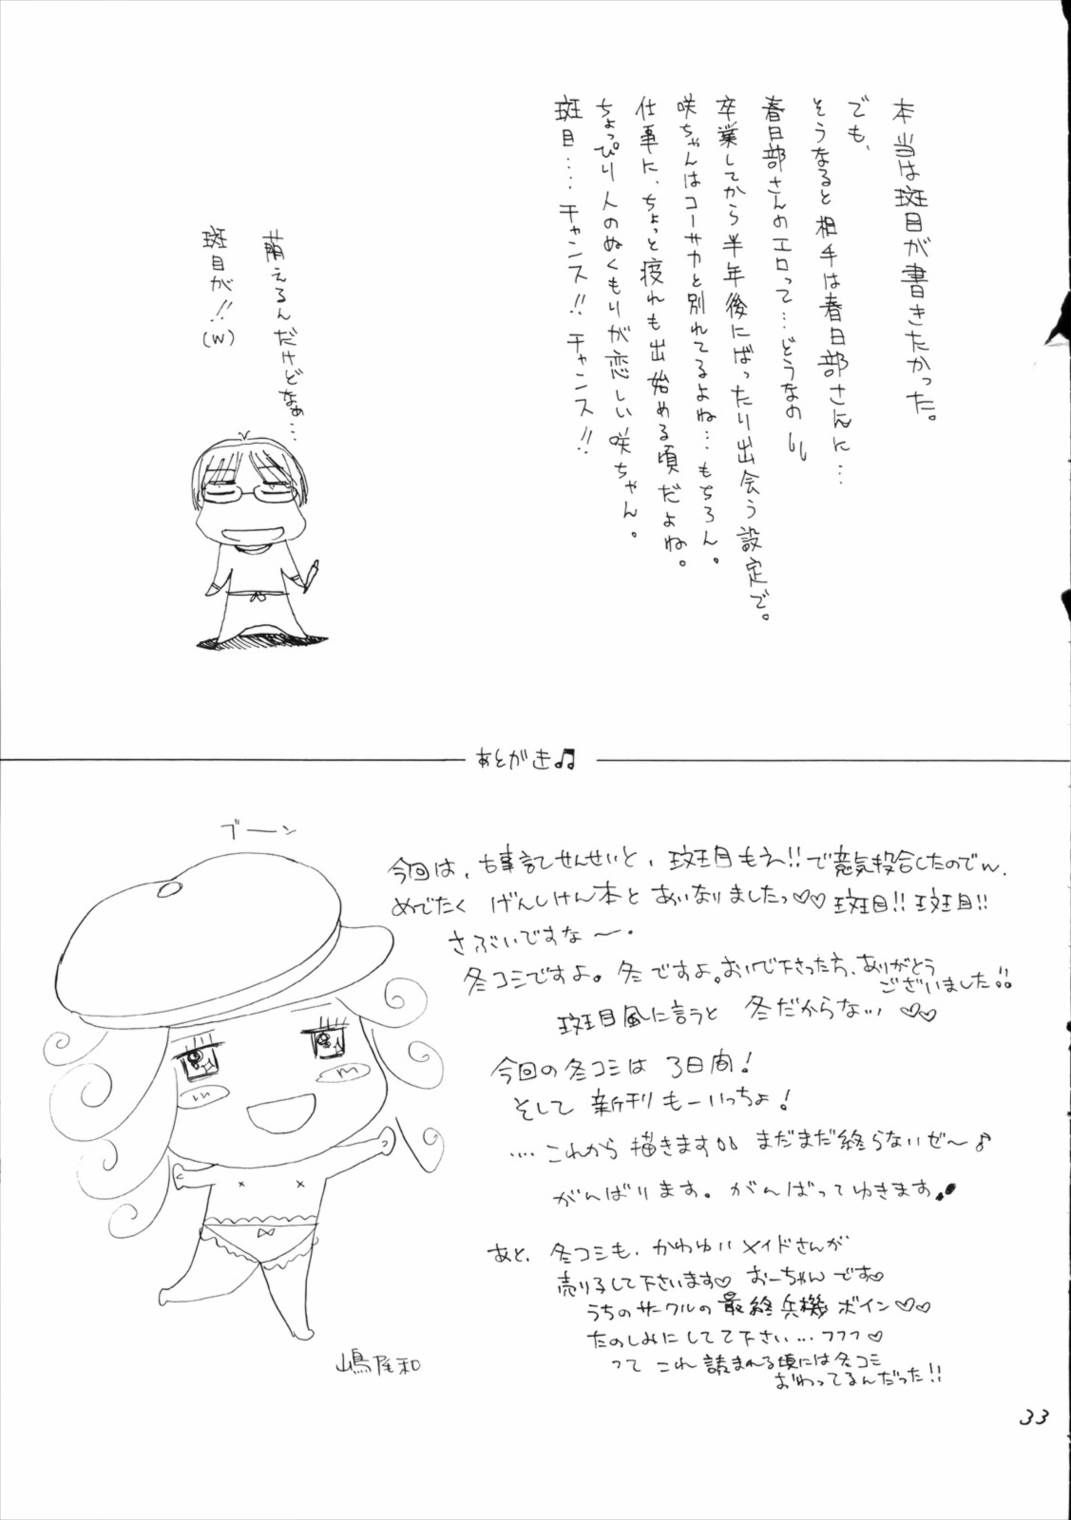 本当は斑目が書きたかった。
でも、
そうなると相手は春日部さんに…
春日部さんのエロって…どうなの
卒業してから半年後にばったり出会う設定で。
咲ちゃんはコーサカと別れてるよね…もちろん。
仕事に、ちょっと疲れも出始める頃だよね。
ちょっぴり人のぬくもりが恋しい咲ちゃん。
斑目‥‥チャンス!!チャンス!!
萌えるんだけどなぁ…
斑目が!!
(W)
あとがき♫
ブーン
今回は、古事記せんせいと、斑目もえ!!で意気投合したのでw、
めでたく げんしけん本と あいなりましたっ♡♡ 斑目!! 斑目!!
さぶいですな〜。
冬コミですよ。冬ですよ。おいで下さった方、ありがとう
ございました!!
斑目風に言うと 冬だからな… ♡♡
今回の冬コミは 3日間!
そして 新刊 もーいっちょ!
‥‥これから 描きます まだまだ終らないぜ〜♪
がんばります。がんばってゆきます
あと、冬コミも、かわゆい メイドさんが
売り子して下さいます♡ おーちゃんです♡
うちのサークルの最終兵機 ボイン♡♡
たのしみにしてて下さい…フフフ♡
って これ 読まれる頃には冬コミ
おわってるんだった!!
嶋尾和
33